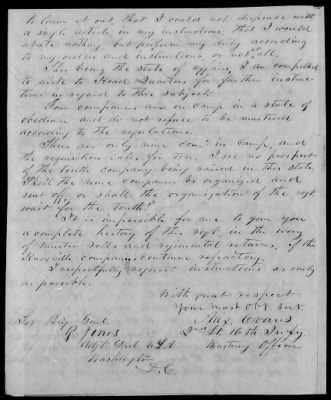 to leave it out that I could not dispense with
a single article in my instructions, that I would
abate nothing, but perform my duty according
to my orders and instructions, or not at all.
This being the state of affairs, I am compelled
to write to Head Quarters for further instruc-
tions in regard to this subject.
Four companies are in camp in a state of
obedience and do not refuse to be mustered
according to the regulations.
There are only nine com. in camp, and
the requisition calls for ten, I see no prospect
of the tenth company being raised in this state.
Shall the nine companies be organized and
sent off, or shall the organization of the regt.
wait for the tenth?
It is impossible for me to give you
a complete history of this regt, in the way
of muster rolls and regimental returns, if the
companies continue refractory.
I respectfully request instructions as early
as possible.
With great respect
Your most Obt. Servt.
Alex. Evans
2nd Lt. 16th Infy
Mustering Officer
To Brig Genl
R. Jones
Adjt Genl U.S.A
Washington
D.C.